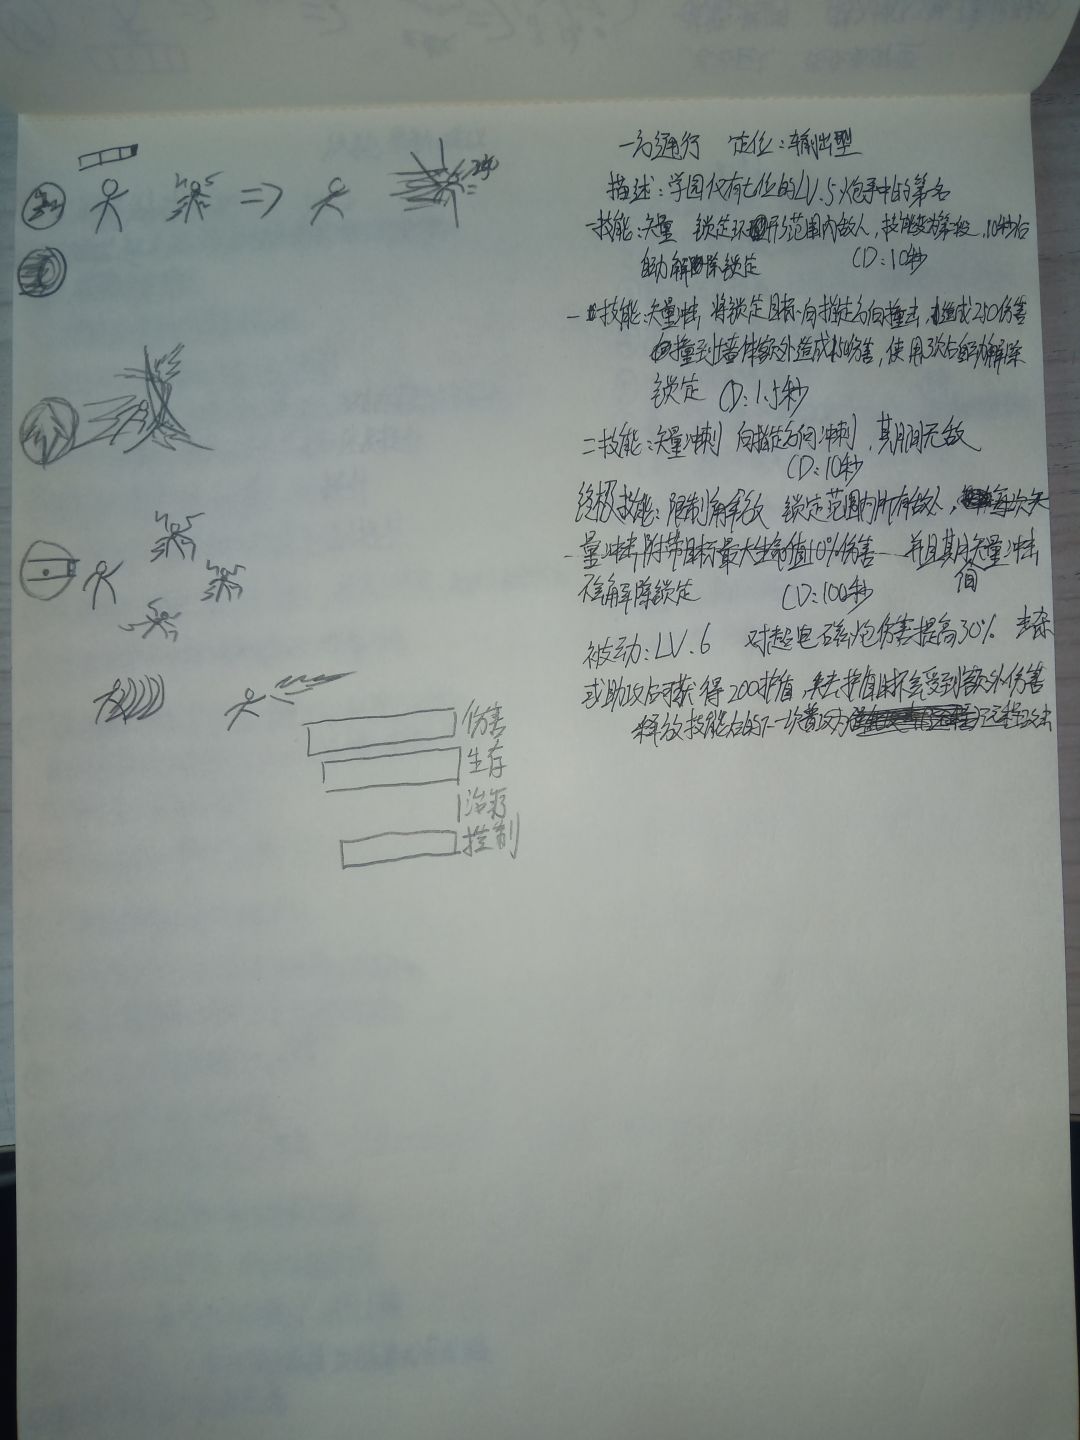 一方通行 定位:输出型
描述:学园仅有七位的LV.5
一技能:矢量 锁定环形范围内敌人,技能 10秒后
自动解除锁定 CD:10秒
一技能:矢量冲击 将锁定目标向指定方向撞击,造成250伤害
撞到墙体额外造成 伤害,使用3次后自动解除
锁定 CD:1.5秒
二技能:矢量冲刺 向指定方向冲刺,其期间无敌
CD:10秒
终极技能:限制解放 锁定范围内所有敌人,每次矢
量冲击附带目标最大生命值10%伤害 并且其间矢量冲击
不会解除锁定 CD:100秒
被动:LV.6 对超电磁炮伤害提高30% 击杀
或助攻后可获得200护值,失去护值时不会受到额外伤害
释放技能后的下一次普攻为 远程攻击
伤害
生存
治疗
控制